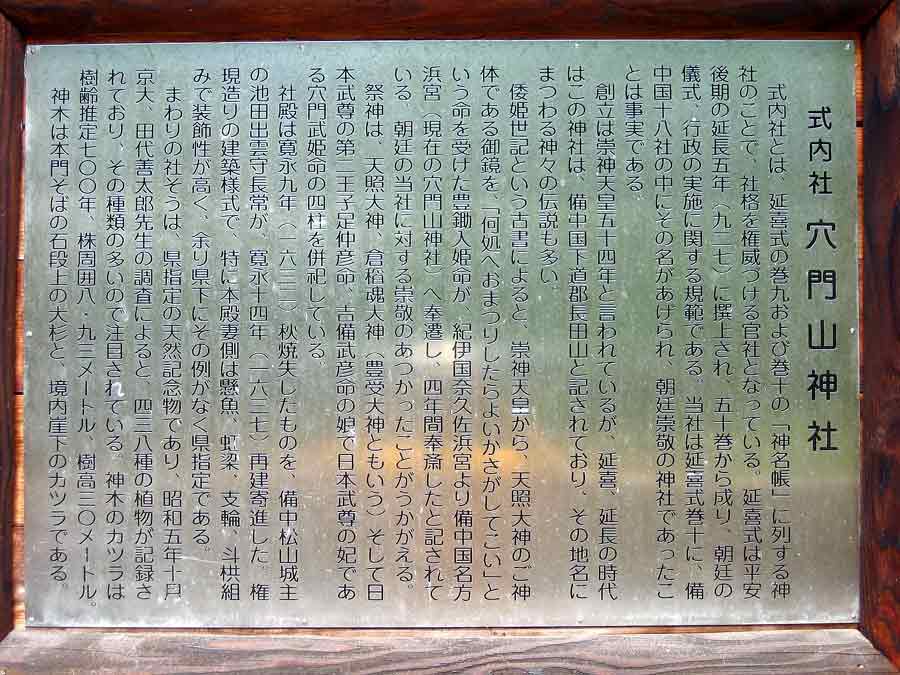 式内社 穴門山神社
式内社とは、延喜式の巻九および巻十の「神名帳」に列する神
社のことで、社格を権威づける官社となっている。延喜式は平安
後期の延長五年（九二七）に撰上され、五十巻から成り、朝廷の
儀式、行政の実施に関する規範である。当社は延喜式巻十に、備
中国十八社の中にその名があげられ、朝廷崇敬の神社であったこ
とは事実である。
創立は崇神天皇五十四年と言われているが、延喜、延長の時代
はこの神社は、備中国下道郡長田山と記されており、その地名に
まつわる神々の伝説も多い。
倭姫世記という古書によると、崇神天皇から、天照大神のご神
体である御鏡を、「何処へおまつりしたらよいかさがしてこい」と
いう命を受けた豊鋤入姫命が、紀伊国奈久佐浜宮より備中国名方
浜宮（現在の穴門山神社）へ奉遷し、四年間奉斎したと記されて
いる。朝廷の当社に対する崇敬のあつかったことがうかがえる。
祭神は、天照大神、倉稲魂大神（豊受大神ともいう）そして日
本武尊の第二王子足仲彦命、吉備武彦命の娘で日本武尊の妃であ
る穴門武姫命の四柱を併祀している。
社殿は寛永九年（一六三二）秋焼失したものを、備中松山城主
の池田出雲守長常が、寛永十四年（一六三七）再建寄進した。権
現造りの建築様式で、特に本殿妻側は懸魚、虹梁、支輪、斗栱組
みで装飾性が高く、余り県下にその例がなく県指定である。
まわりの社そうは、県指定の天然記念物であり、昭和五年十月
京大、田代善太郎先生の調査によると、四三八種の植物が記録さ
れており、その種類の多いので注目されている。神木のカツラは
樹齢推定七〇〇年、株周囲八・九三メートル、樹高三〇メートル。
神木は本門そばの石段上の大杉と、境内崖下のカツラである。